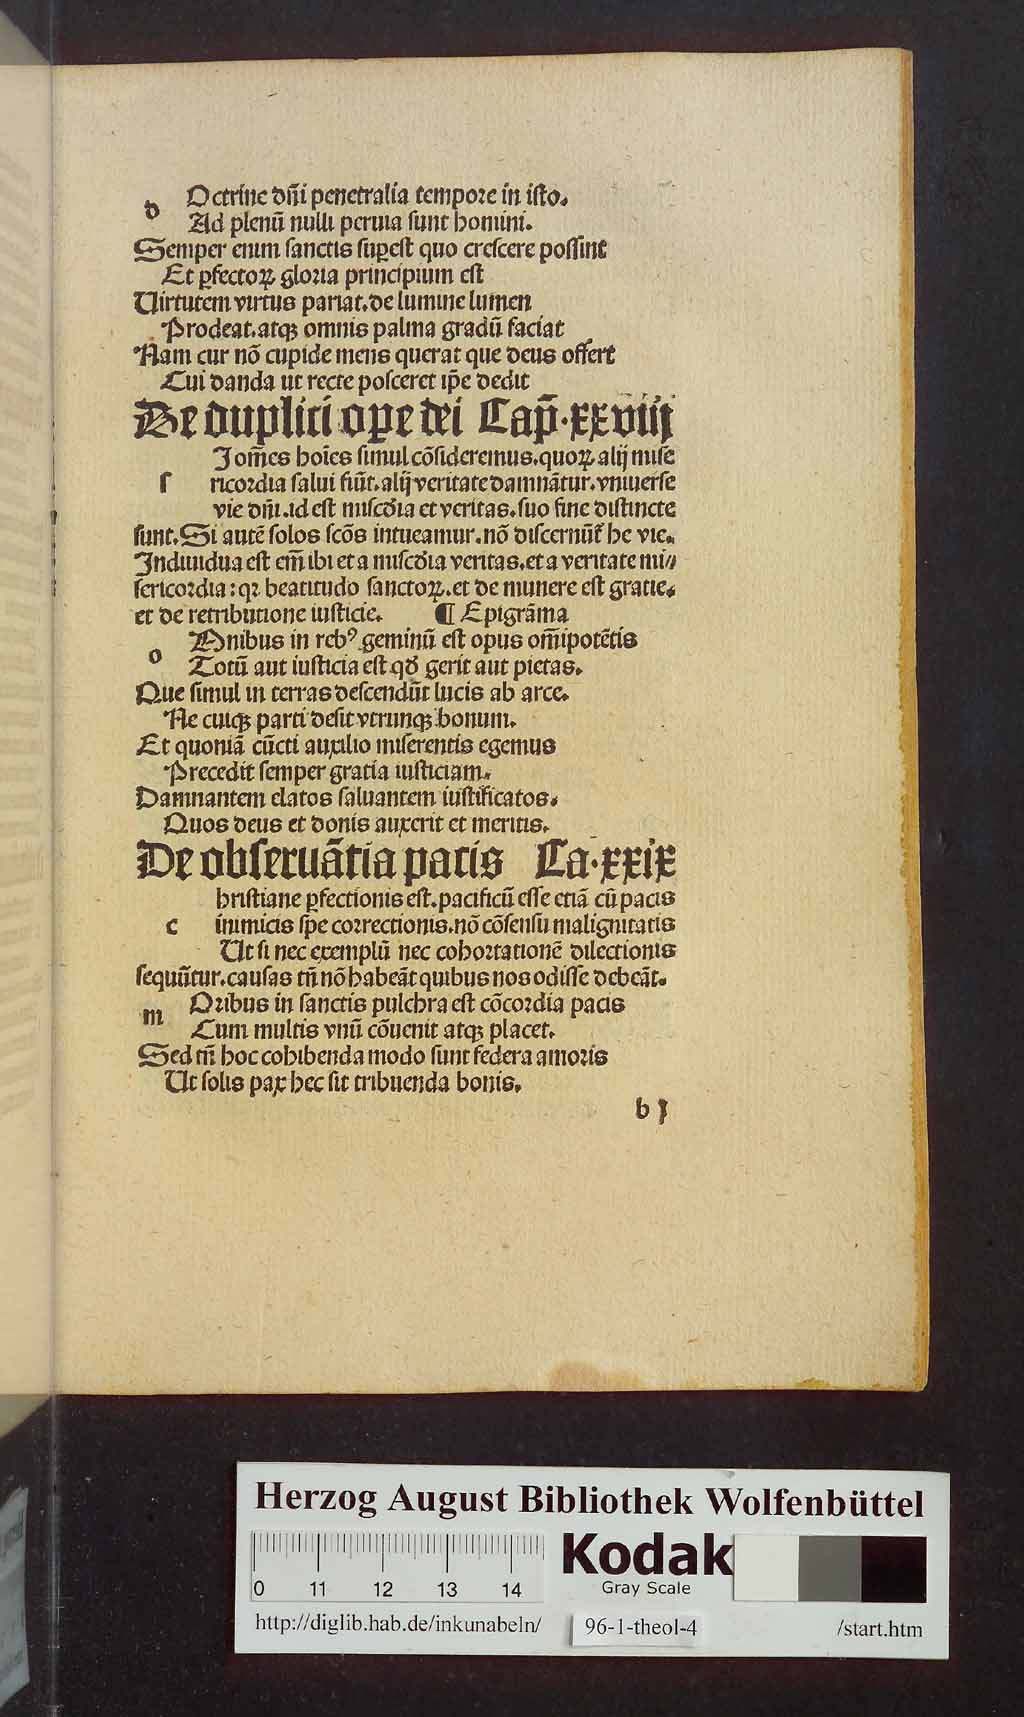 d Octrine dñi penetralia tempore in isto.
Ad plenū nulli peruia sunt homini.
Semper enim sanctis suꝑest quo crescere possint
Et ꝑfectoꝝ gloria principium est
Uirtutem virtus pariat. de lumine lumen
Prodeat. atqꝫ omnis palma gradū faciat
Nam cur nō cupide mens querat que deus offert
Cui danda ut recte posceret ip̄e dedit
De duplici oꝑe dei Cap̄. xxviij
I om̄es hoīes simul cōsideremus. quoꝝ alij mise
s ricordia salui fiūt. alij veritate damnātur. vniuerse
vie dñi. id est mis̄cdia et veritas. suo fine distincte
sunt. Si autē solos scōs intueamur. nō discernūt̄ he vie.
Indiuidua est em̄ ibi et a mis̄cdia veritas. et a veritate mi⸗
sericordia: qꝛ beatitudo sanctoꝝ. et de munere est gratie.
et de retributione iusticie. ¶ Epigrāma
o Mnibus in rebꝰ geminū est opus om̄ipotētis
Totū aut iusticia est qđ gerit aut pietas.
Que simul in terras descendūt lucis ab arce.
Ne cuiqꝫ parti desit vtrunqꝫ bonum.
Et quoniā cūcti auxilio miserentis egemus
Precedit semper gratia iusticiam.
Damnantem elatos saluantem iustificatos.
Quos deus et donis auxerit et meritis.
De obseruātia pacis Ca. xxix
hristiane ꝑfectionis est. pacificū esse etiā cū pacis
c inimicis spe correctionis. nō cōsensu malignitatis
Ut si nec exemplū nec cohortationē dilectionis
sequūtur. causas tñ nō habeāt quibus nos odisse debeāt.
m Oribus in sanctis pulchra est cōcordia pacis
Cum multis vnū cōuenit atqꝫ placet.
Sed tñ hoc cohibenda modo sunt federa amoris
Ut solis pax hec sit tribuenda bonis.
b j
Herzog August Bibliothek Wolfenbüttel
0 11 12 13 14
Kodak
Gray Scale
http://diglib.hab.de/inkunabeln/ 96-1-theol-4 /start.htm